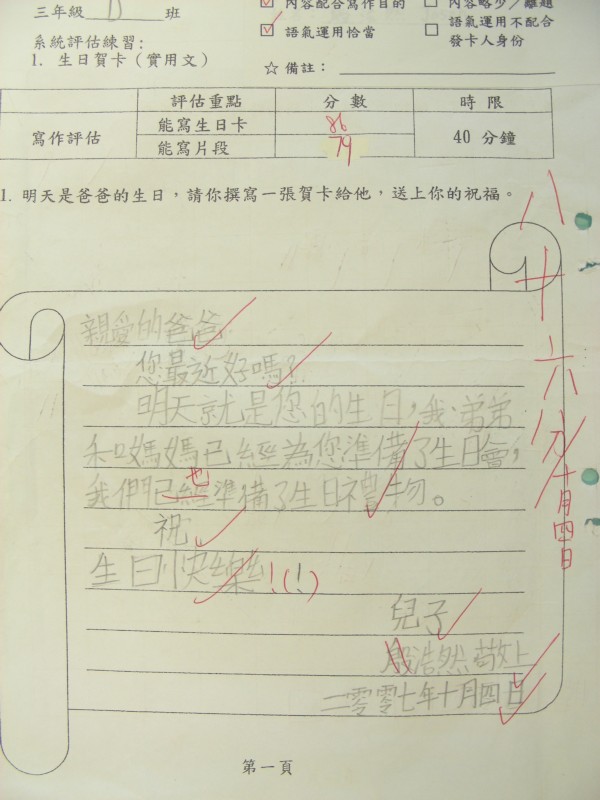 三年級 D 班
☑ 內容配合寫作目的 □ 內容略少/離題
☑ 語氣運用恰當 □ 語氣運用不配合發卡人身份
系統評估練習：
1. 生日賀卡（實用文）
☆ 備註：
評估重點 分數 時限
寫作評估 能寫生日卡 86 40 分鐘
能寫片段 79
1. 明天是爸爸的生日，請你撰寫一張賀卡給他，送上你的祝福。
八十六分
十月四日
親愛的爸爸
您最近好嗎？
明天就是您的生日，我、弟弟
和媽媽已經為您準備了生日會，
也
我們已經準備了生日禮物。
祝
生日快樂！(！)
兒子
殷浩然敬上
二零零七年十月四日
第一頁